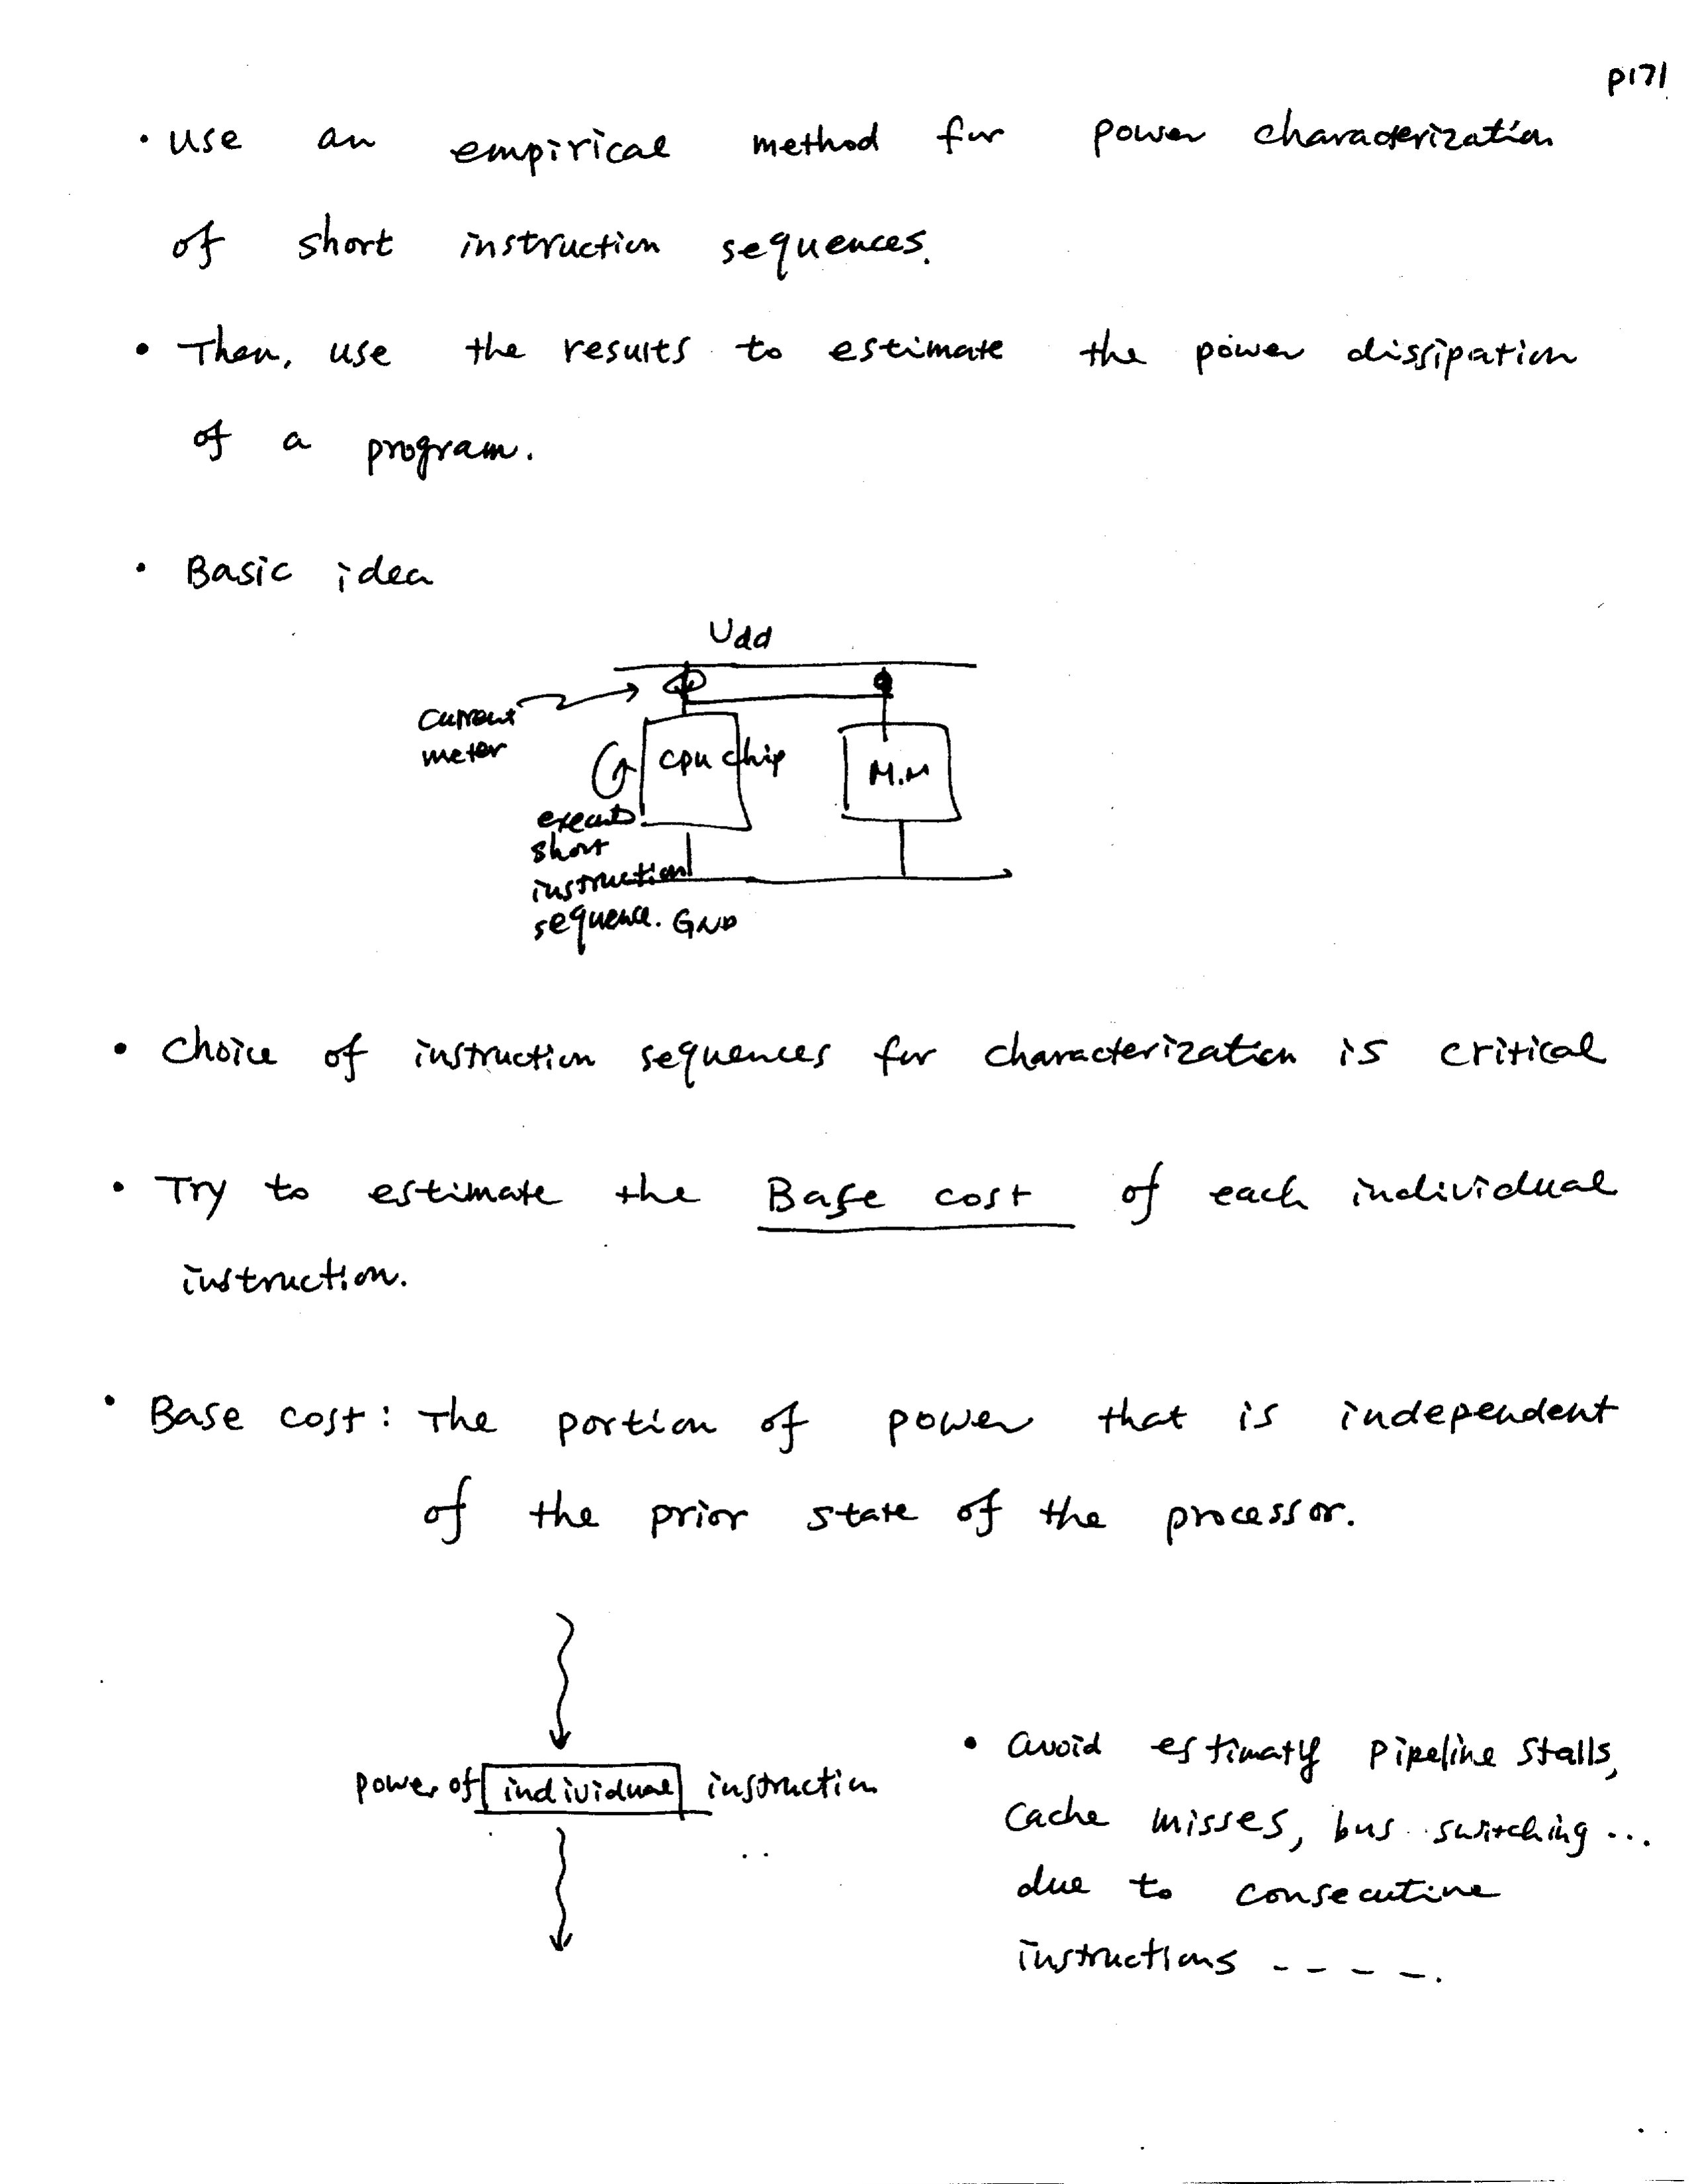 p171
• Use an empirical method for power characterization
of short instruction sequences.
• Then, use the results to estimate the power dissipation
of a program.
• Basic idea
Vdd
Current
meter
cpu chip
M.M
execute
short
instruction
sequence. GND
• Choice of instruction sequences for characterization is critical
• Try to estimate the Base cost of each individual
instruction.
• Base cost: The portion of power that is independent
of the prior state of the processor.
power of individual instruction
• avoid estimatg pipeline stalls,
cache misses, bus switching ...
due to consecutive
instructions - - - -.